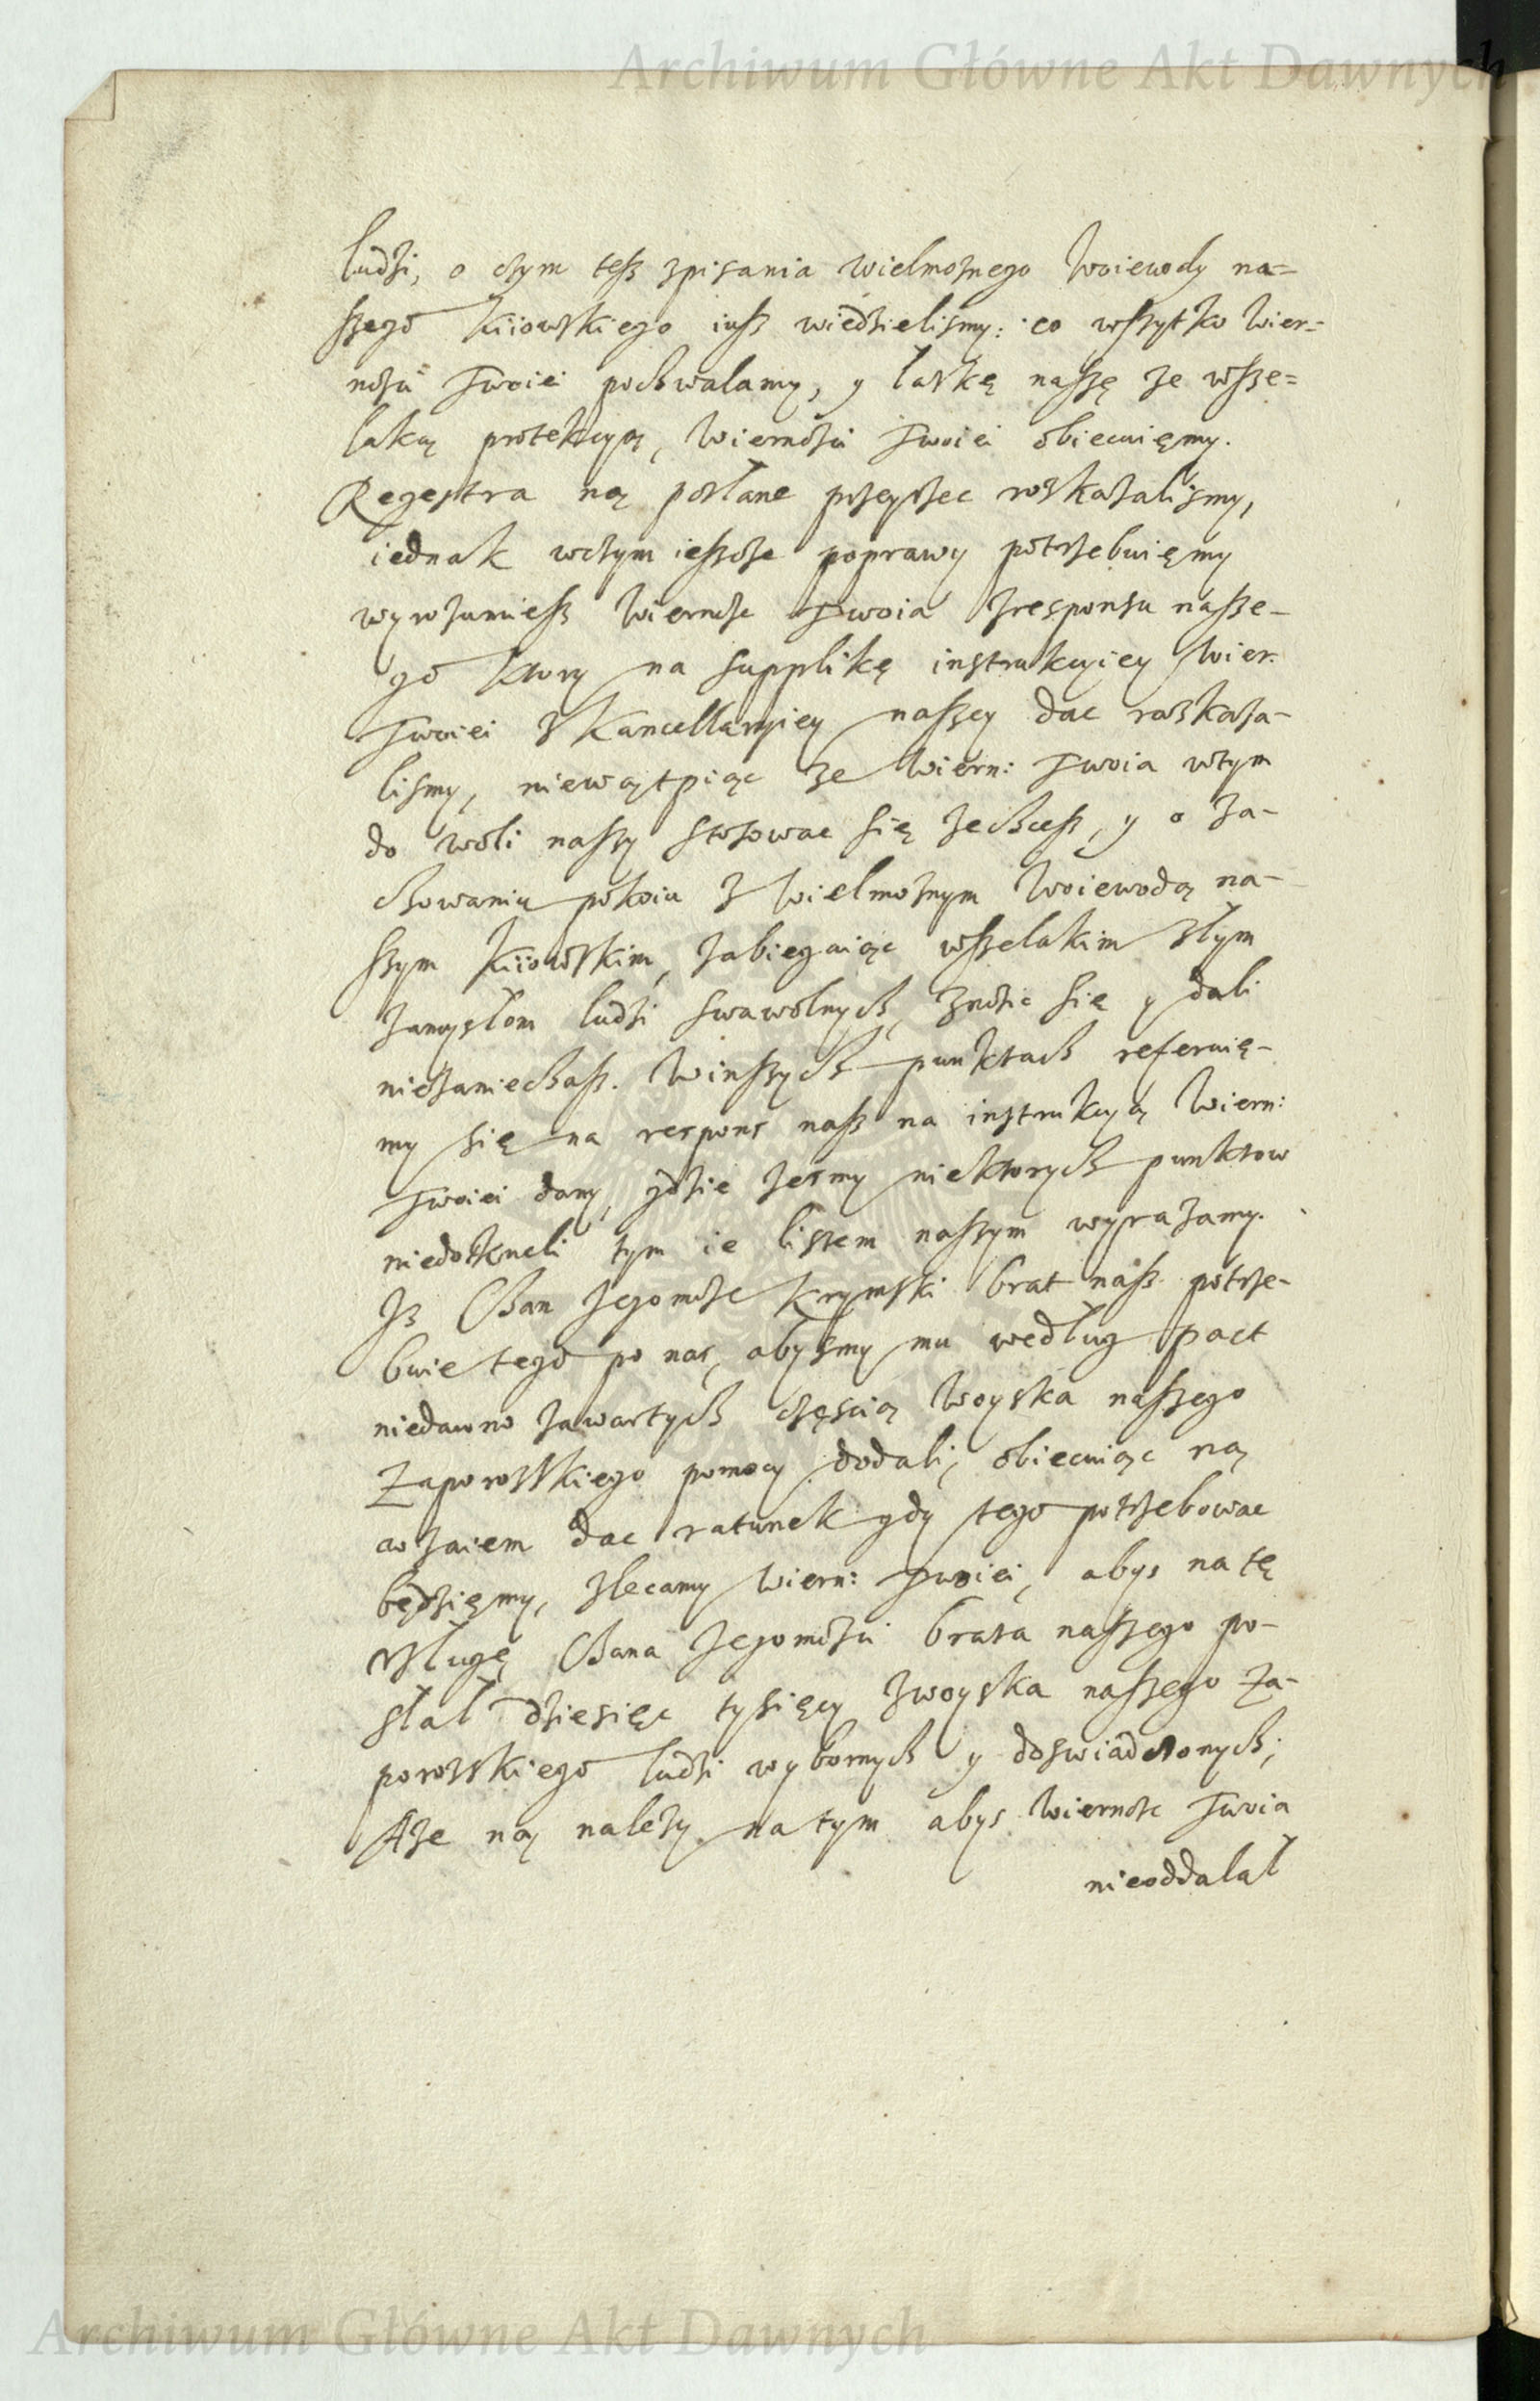 Archiwum Główne Akt Dawnych
ludzi, o czym tesz zpisania wielmoznego Woiewody na=
szego Kiiowskiego iusz wiedzielismy: co wszytko Wier=
nosci Twoiei pochwalamy, y łaskę naszę ze wsze=
laką protekcyą, Wiernosci Twoiei obiecuięmy.
Regestra ną posłane przeyzrec roskazalismy,
iednak wczym ieszcze poprawy potrzebuięmy
wyrozumiesz Wiernosc Twoia zresponsu nasze-
go ktory na supplikę instrukcyiey Wier:
Twoiei z Kancellaryiey naszey dac roskaza-
lismy, niewątpiąc ze Wiern: Twoia wtym
do woli naszy stosowac się zechcesz, y o za-
chowaniu pokoiu z Wielmoznym Woiewodą na-
szym Kiiowskim, zabiegaiąc wszelakim złym
zamysłom ludzi swawolnych, znosic się y dali
niezaniechasz. Winszych punktach referuię-
my się na respons nasz na instrukcyą Wiern:
Twoiei dany, gdzie zesmy niektorych punktow
niedotkneli tym ie listem naszym wyrazamy.
Iz Chan Jegomosc Krymski brat nasz potrze-
buie tego po nas, abysmy mu według pact
niedawno zawartych częscią Woyska naszego
Zaporoskiego pomocy dodali, obiecuiąc ną
wzaiem dac ratunek gdy tego potrzebowac
będzięmy, zlecamy Wiern: Twoiei, abys na tę
usługę Chana Jegomosci brata naszego po-
słał dziesięc tysięcy zwoyska naszego Za-
poroskiego ludzi wybornych y doswiadczonych;
Aze ną nalezy na tym abys Wiernosc Twoia
nieoddalał
Archiwum Główne Akt Dawnych